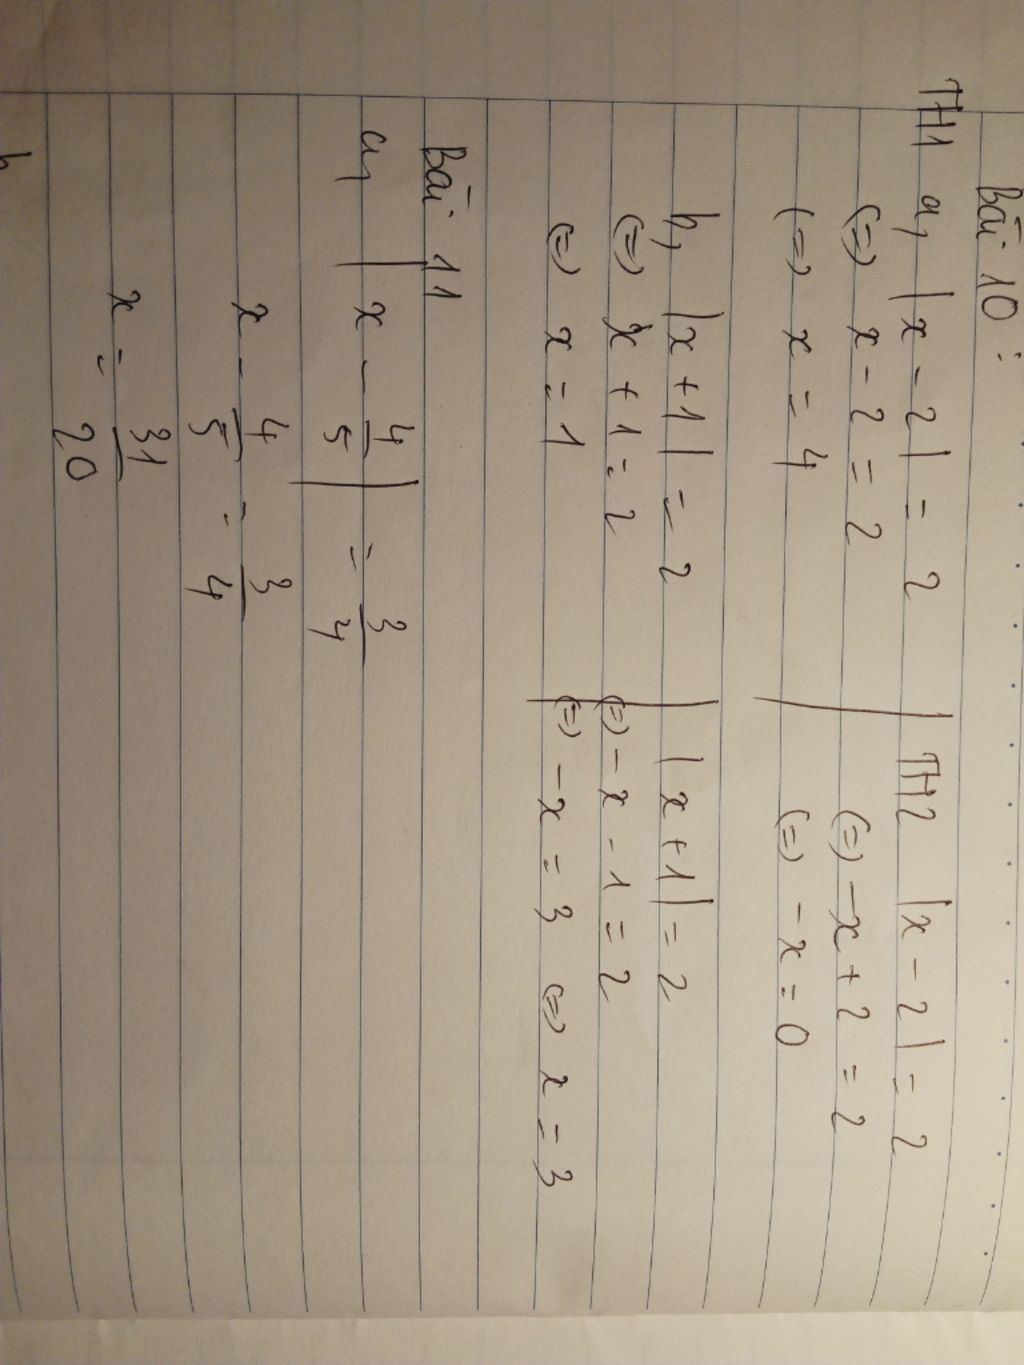 Bài 10:
TH1 a, |x - 2| = 2
(=) x - 2 = 2
(=) x = 4
TH2 |x - 2| = 2
(=) -x + 2 = 2
(=) -x = 0
b, |x + 1| = 2
(=) x + 1 = 2
(=) x = 1
|x + 1| = 2
(=) -x - 1 = 2
(=) -x = 3 (=) x = 3
Bài 11
a, |x - 4/5| = 3/4
x - 4/5 = 3/4
x = 31/20